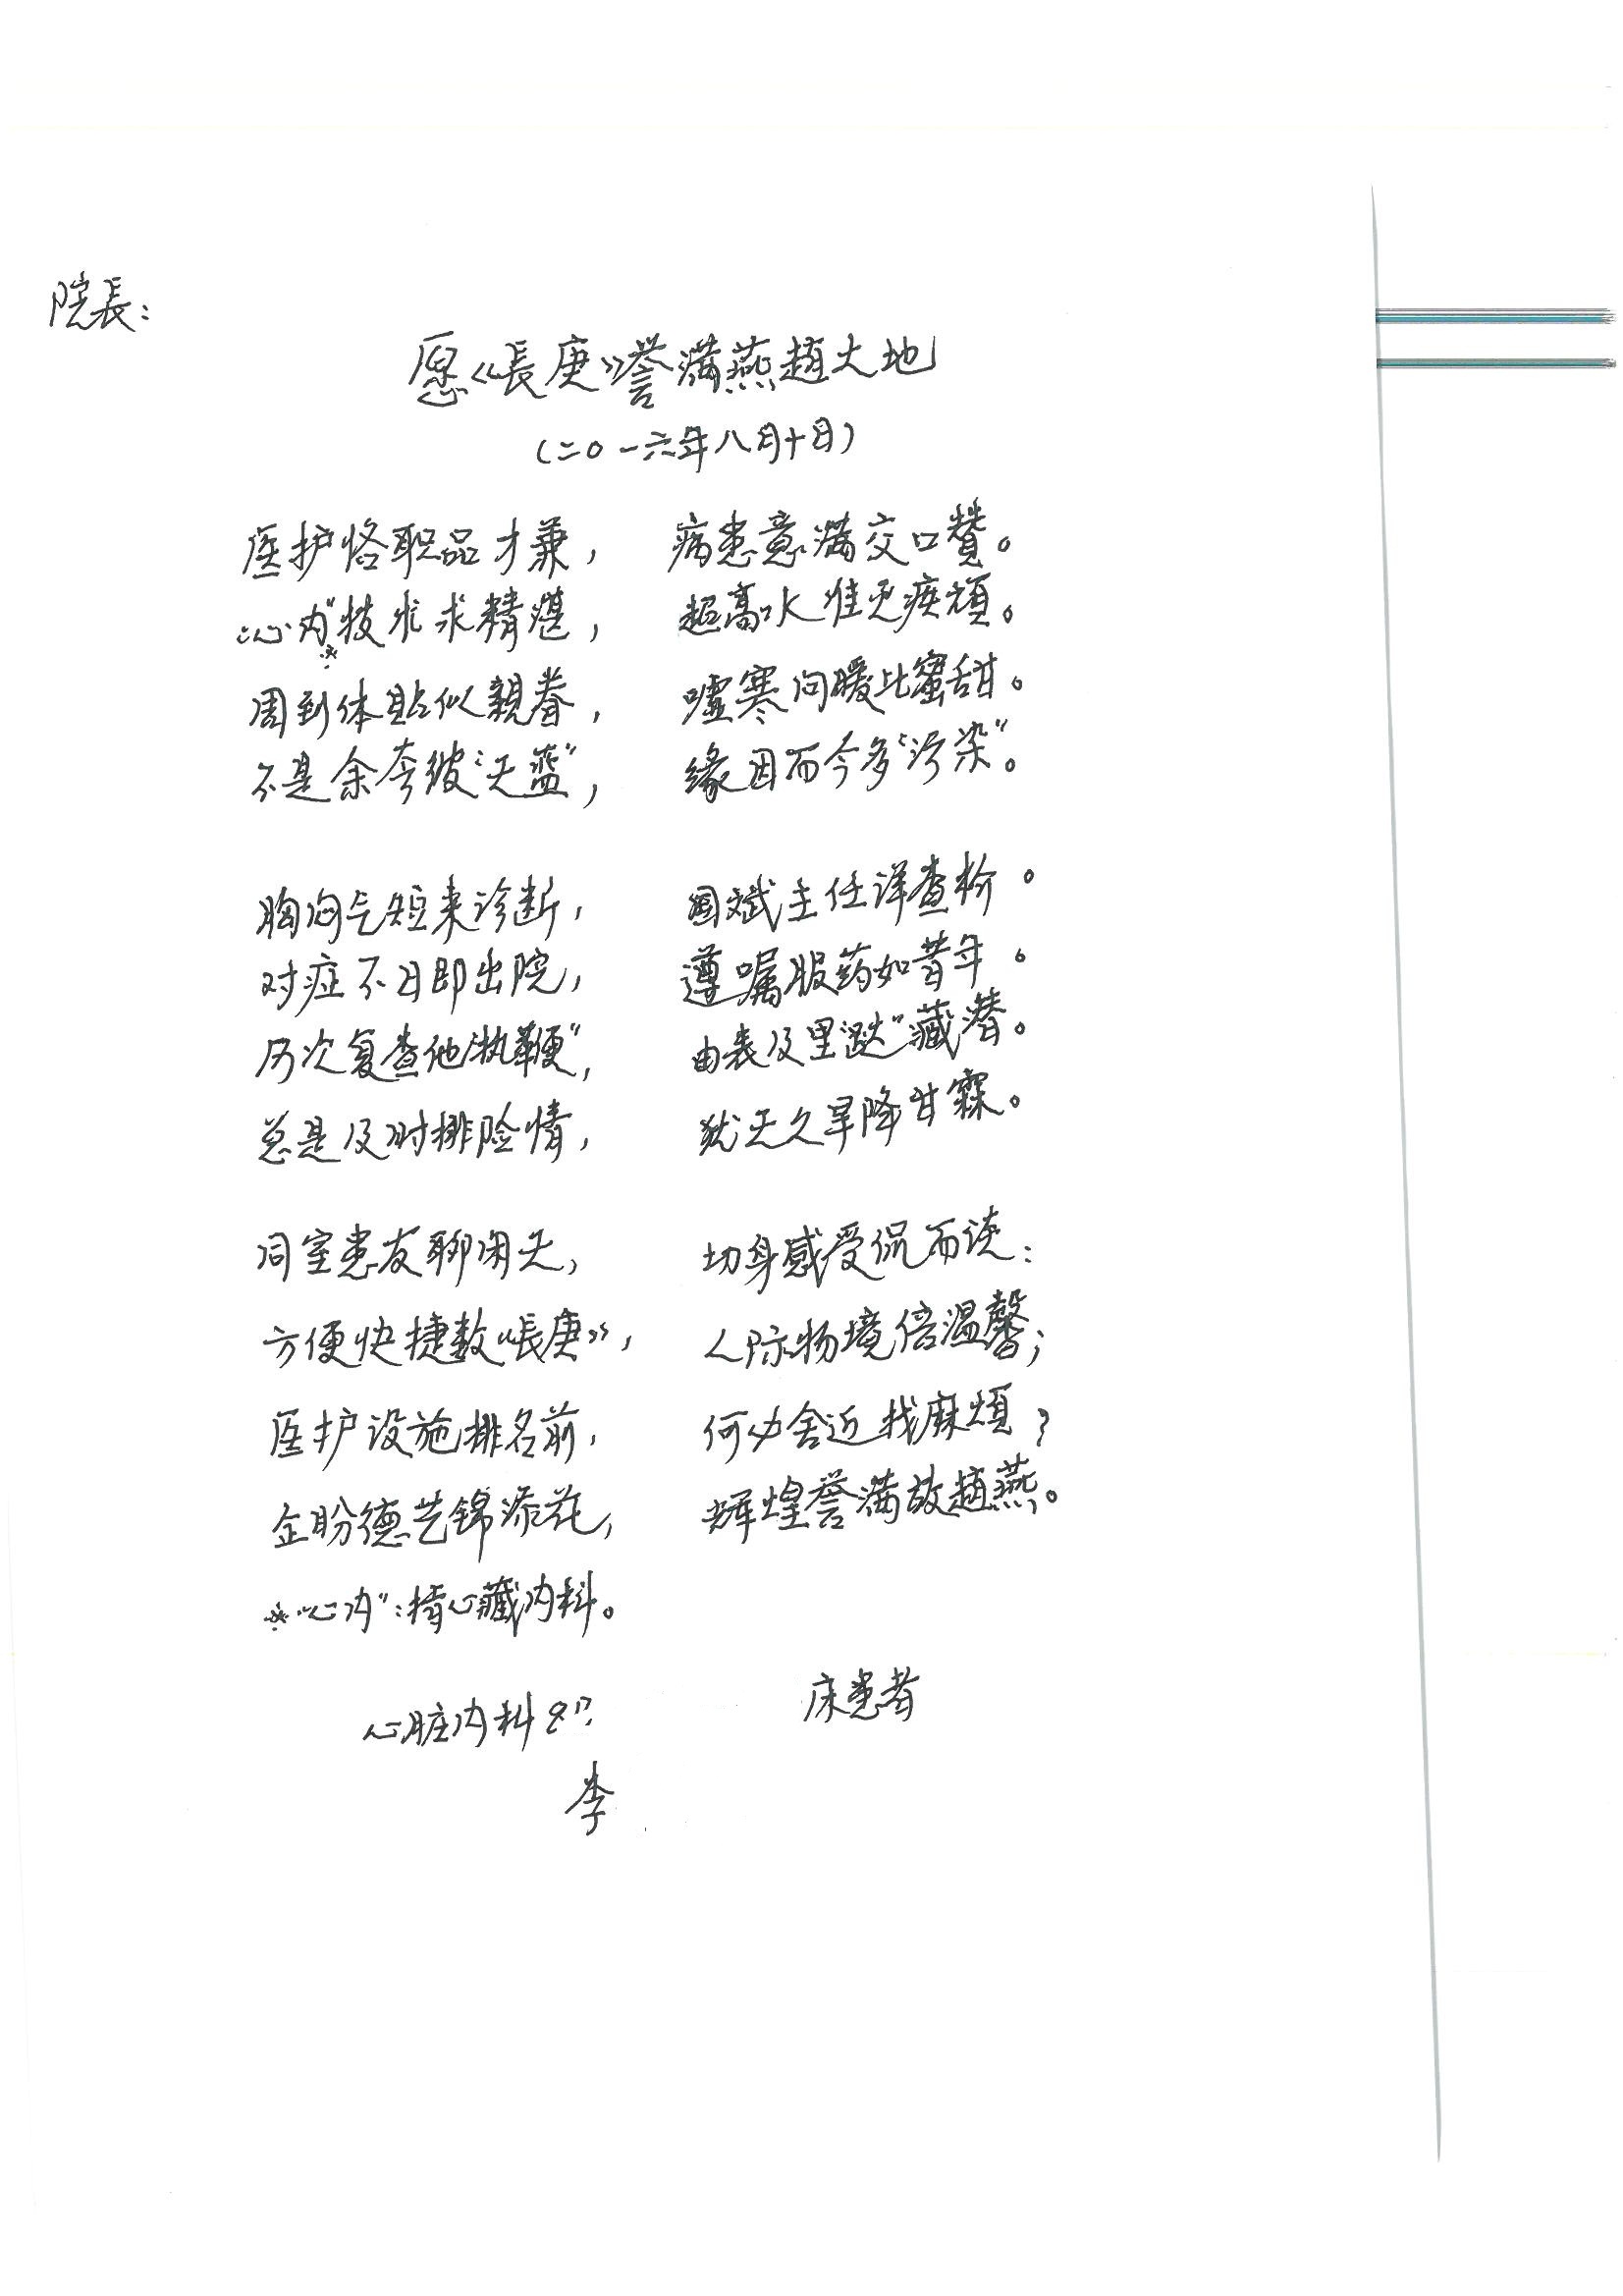 院長：
愿《長庚》誉满燕趙大地
（二0一六年八月十日）
医护恪职品才兼， 病患意满交口赞。
“心内”技术求精湛， 超高水准灭疾烦。
※
周到体贴似親眷， 嘘寒问暖比蜜甜。
不是余夸彼“天蓝”， 缘因而今多“污染”。
胸闷气短来诊断， 国斌主任详查检。
对症不日即出院， 遵嘱服药如昔年。
历次复查他“执鞭”， 由表及里 藏潜。
总是及时排险情， 犹天久旱降甘霖。
同室患友聊闲天， 切身感受侃而谈：
方便快捷数《長庚》， 人际物境倍温馨；
医护设施排名前， 何必舍近找麻煩？
企盼德艺锦添花， 辉煌誉满故趙燕。
※“心内”：指心臟内科。
心脏内科 床患者
李